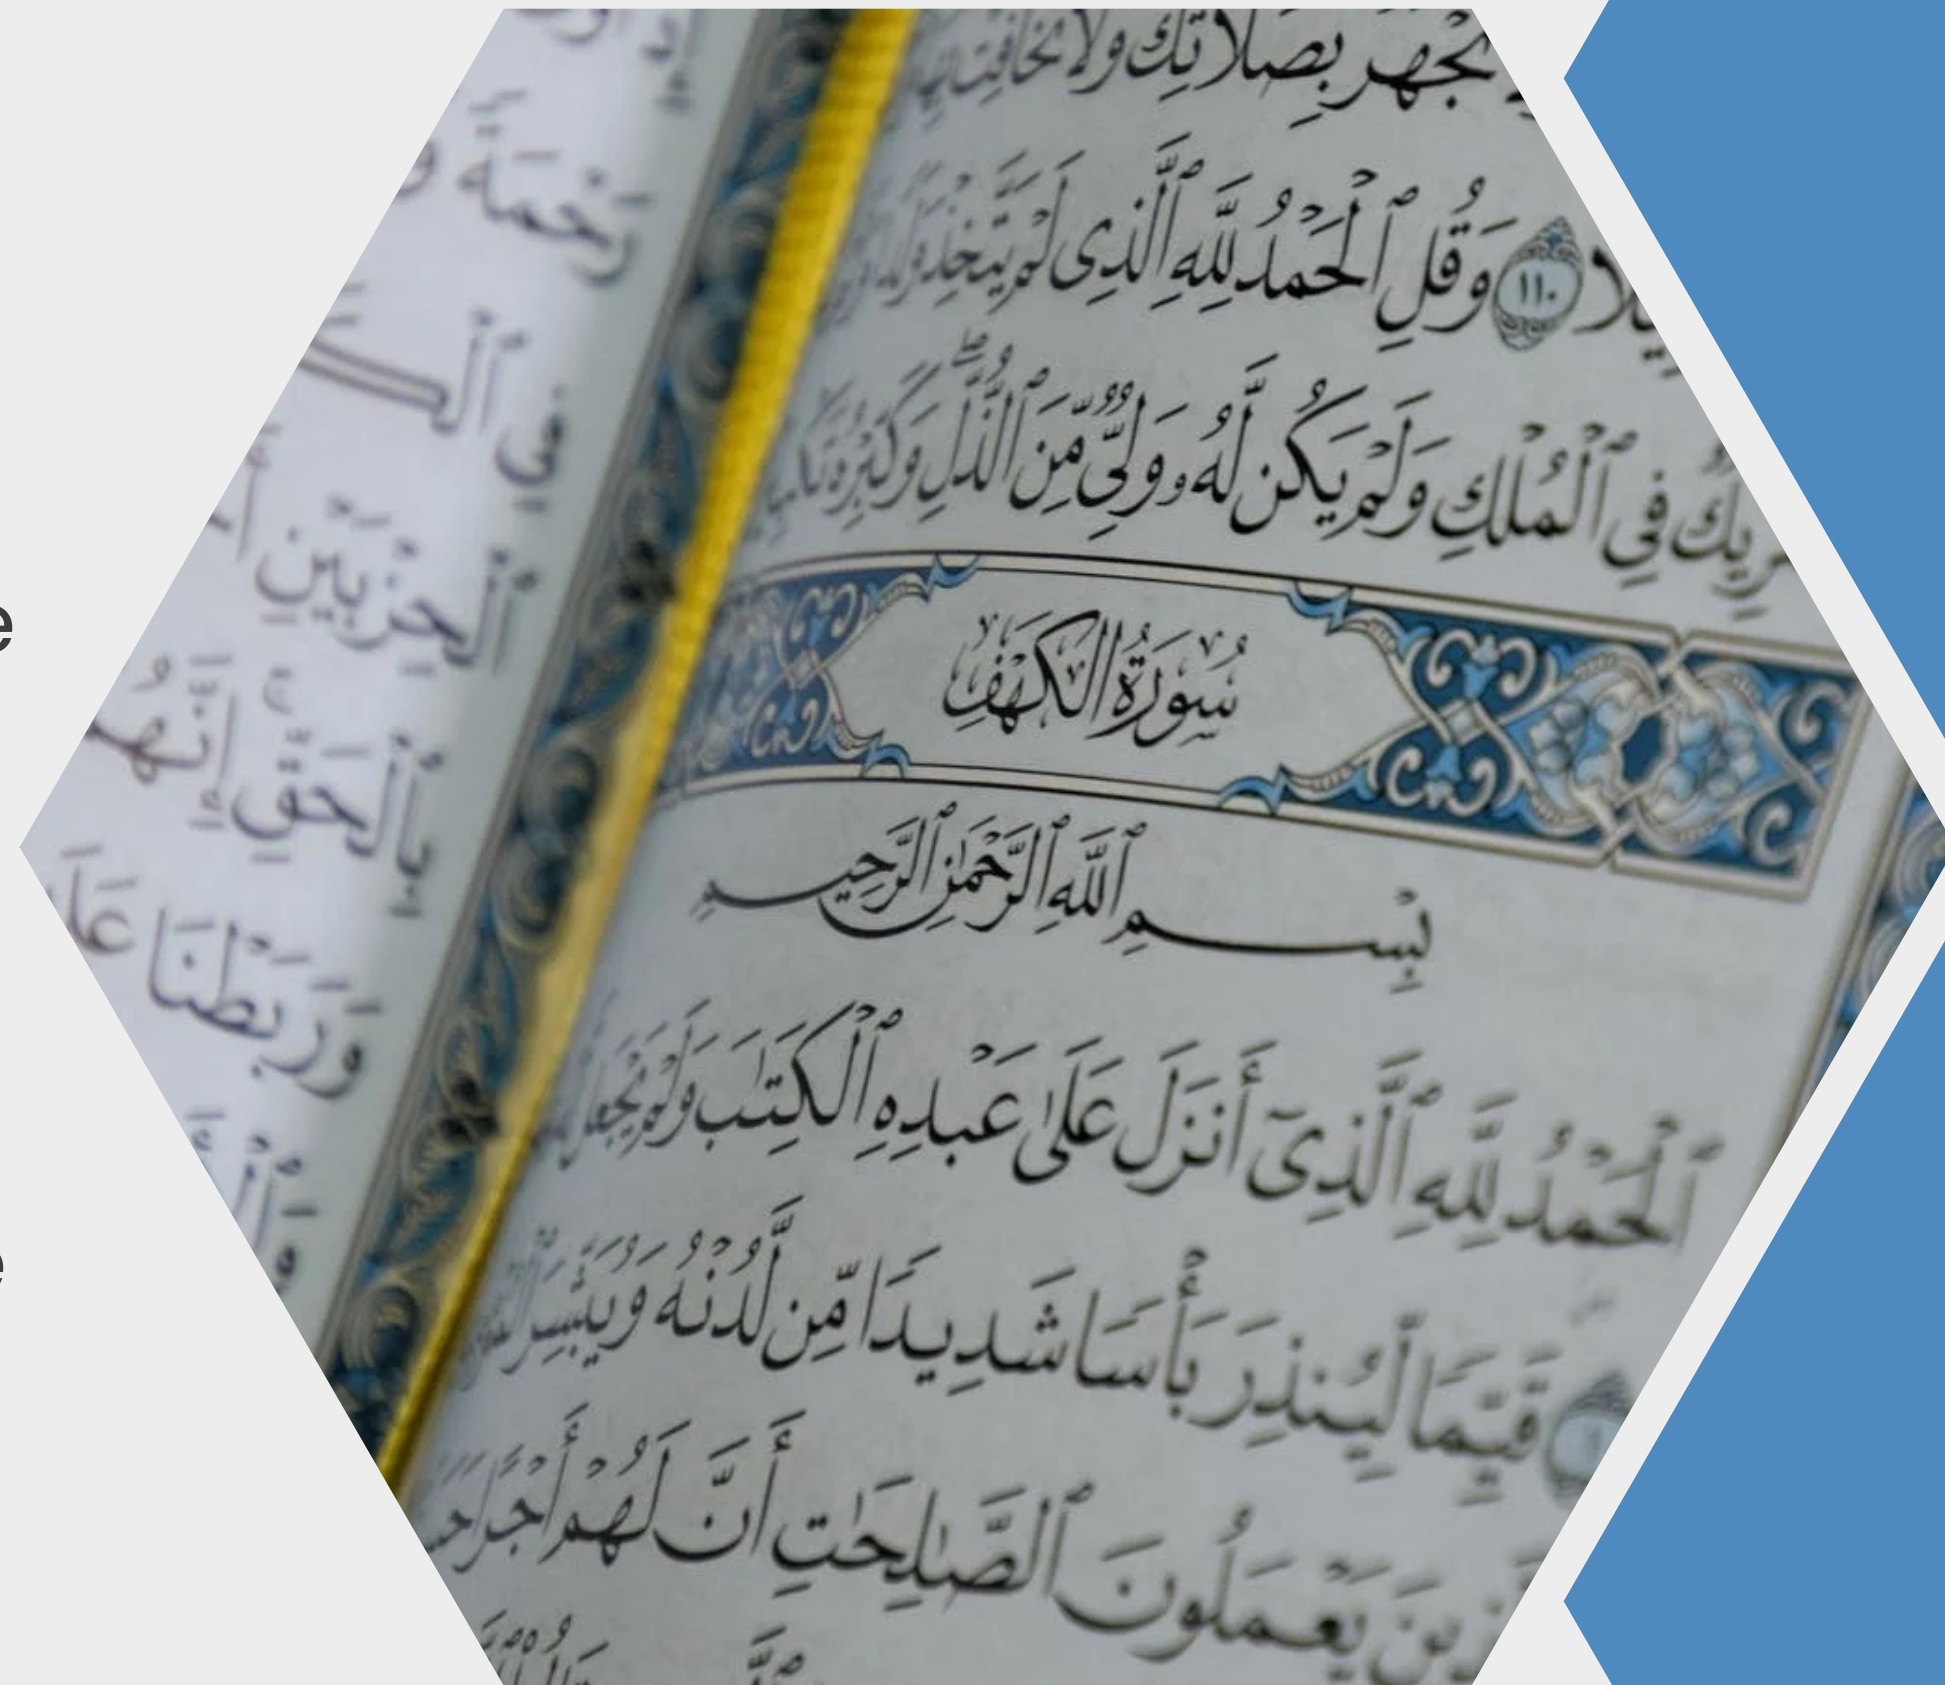 تَجْهَرْ بِصَلَاتِكَ وَلَا تُخَافِتْ بِهَا
١١٠ وَقُلِ ٱلْحَمْدُ لِلَّهِ ٱلَّذِى لَمْ يَتَّخِذْ وَلَدًا
فِى ٱلْمُلْكِ وَلَمْ يَكُن لَّهُۥ وَلِىٌّ مِّنَ ٱلذُّلِّ وَكَبِّرْهُ تَكْبِيرًا
سُورَةُ الكَهْفِ
بِسْمِ ٱللَّهِ ٱلرَّحْمَٰنِ ٱلرَّحِيمِ
ٱلْحَمْدُ لِلَّهِ ٱلَّذِىٓ أَنزَلَ عَلَىٰ عَبْدِهِ ٱلْكِتَٰبَ وَلَمْ يَجْعَل
قَيِّمًا لِّيُنذِرَ بَأْسًا شَدِيدًا مِّن لَّدُنْهُ وَيُبَشِّرَ
يَعْمَلُونَ ٱلصَّٰلِحَٰتِ أَنَّ لَهُمْ أَجْرًا
رَحْمَةً
فِى
ٱلْحِزْبَيْنِ
بِٱلْحَقِّ إِنَّهُمْ
وَرَبَطْنَا
e
e